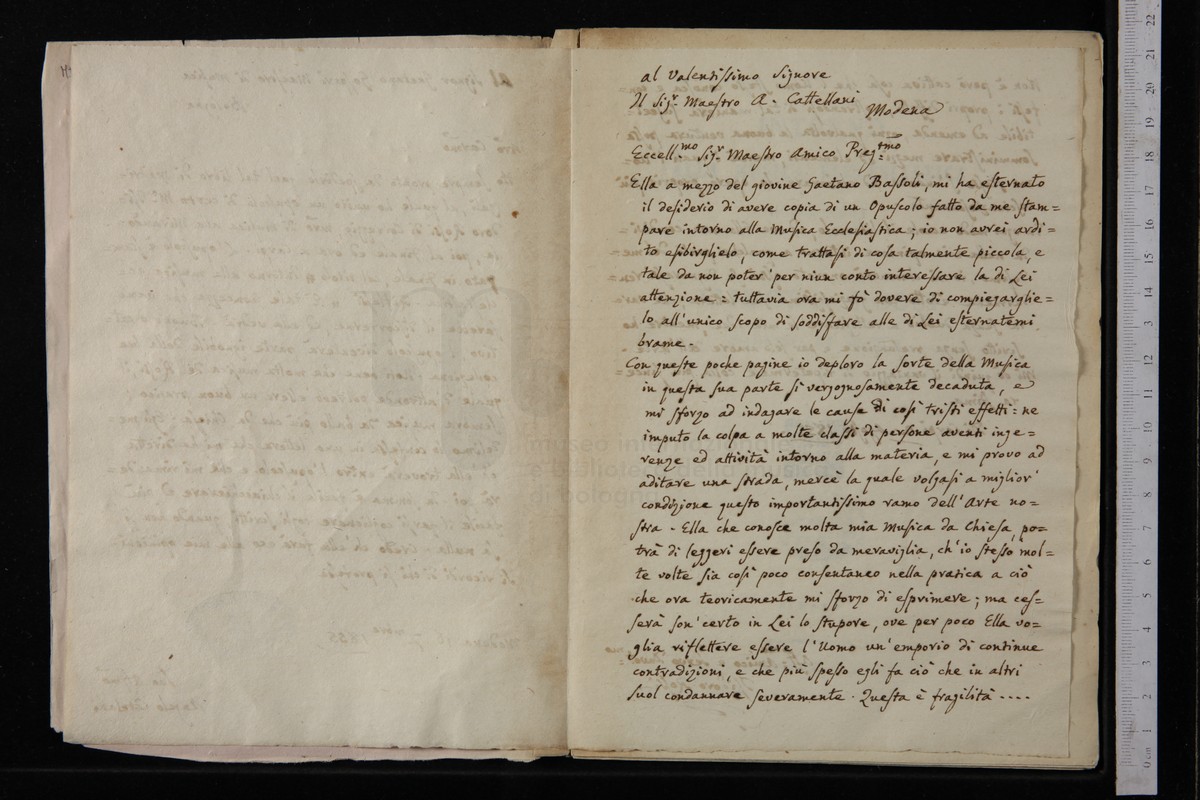 al Valentissimo Signore
Il Sigr. Maestro A. Cattellani
Modena
Eccell.mo Sigr. Maestro Amico Preg.tmo
Ella a mezzo del giovine Gaetano Bassoli, mi ha esternato
il desiderio di avere copia di un Opuscolo fatto da me stam=
pare intorno alla Musica Ecclesiastica; io non avrei ardi=
to esibirglielo, come trattasi di cosa talmente piccola, e
tale da non poter per niun conto interessare la di Lei
attenzione: tuttavia ora mi fò dovere di compiegarglie=
lo all'unico scopo di soddisfare alle di Lei esternatemi
brame.
Con queste poche pagine io deploro la sorte della Musica
in questa sua parte si vergognosamente decaduta, e
mi sforzo ad indagare le cause di così tristi effetti: ne
imputo la colpa a molte classi di persone aventi inge=
renze ed attività intorno alla materia, e mi provo ad
aditare una strada, mercè la quale volgasi a miglior
condizione questo importantissimo ramo dell'Arte no=
stra. Ella che conosce molta mia Musica da Chiesa, po=
trà di leggeri essere preso da meraviglia, ch'io stesso mol=
te volte sia così poco consentaneo nella pratica a ciò
che ora teoricamente mi sforzo di esprimere; ma ces=
serà son' certo in Lei lo stupore, ove per poco Ella vo=
glia riflettere essere l'Uomo un'emporio di continue
contradizioni, e che più spesso egli fa ciò che in altri
suol condannare severamente. Questa è fragilità....
museo in
biblioteca della musica
di bologna